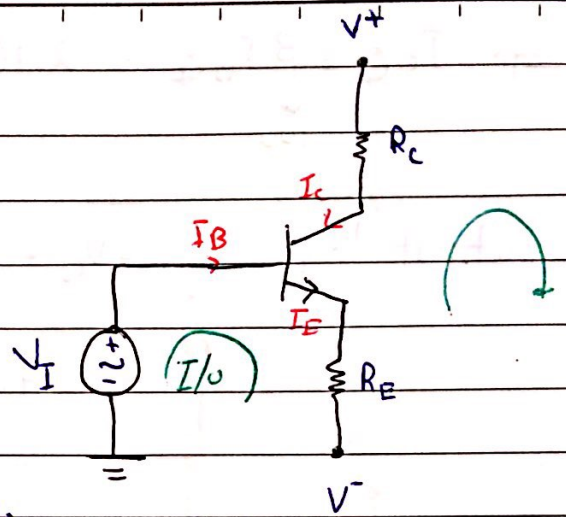 V+
RC
IC
IB
IE
VI
+
~
-
I/o
RE
V-